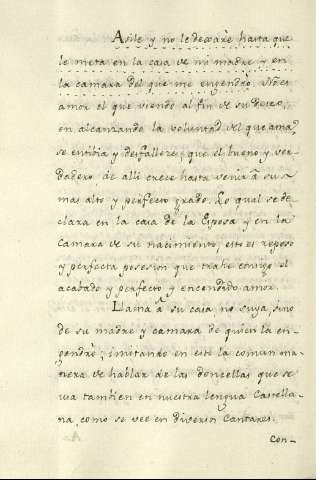 Asile y no le dexaré hasta que
le meta en la casa de mi madre y en
la camara del que me engendró. No es
amor el que viendo al fin de su deseo,
en alcanzando la voluntad del que ama,
se entibia y desfallece; que el bueno y ver
dadero de alli crece hasta venir à su
mas alto y perfecto grado. Lo qual se de
clara en la casa de la Esposa y en la
camara de su nacimiento, esto es reposo
y perfecta posesion que trahe consigo el
acabado y perfecto y encendido amor.
Llama à su casa, no suya, sino
de su madre y camara de quien la en
gendró; imitando en esto la comun ma
nera de hablar de las doncellas que se
usa tambien en nuestra lengua Castella
na, como se vee en diversos Cantares.
Con-